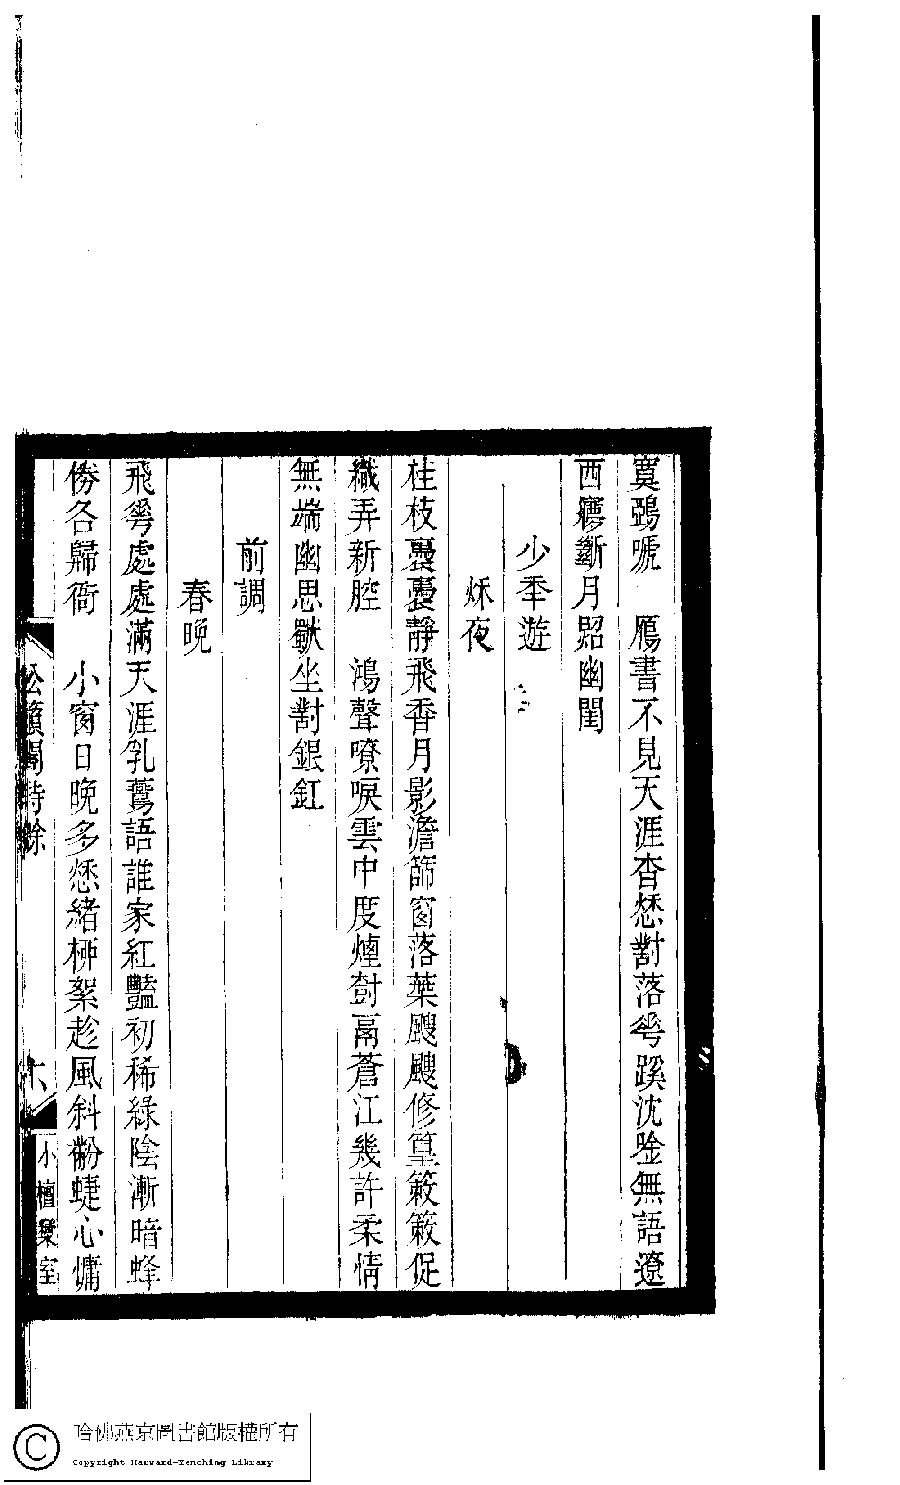 寞鵶嗁　鴈書不見天涯杳愁對落蕚蹊沈唫無語遼
西㝱斷月照幽閨
少秊遊
秌夜
桂枝裛裛靜飛香月影澹篩窗落葉颼颼修篁簌簌促
織弄新腔　鴻聲嘹唳雲中度煙樹鬲蒼江幾許柔情
無端幽思獸坐對銀釭
前調
春晚
飛蕚處處滿天涯乳鶯語誰家紅豔初稀綠陰漸暗蜂
㑃各歸衙　小窗日晚多愁緒桺絮趁風斜粉蜨心慵
松籟閣詩餘
六
小檀欒室
哈佛燕京圖書館版權所有
Copyright Harvard-Yenching Library